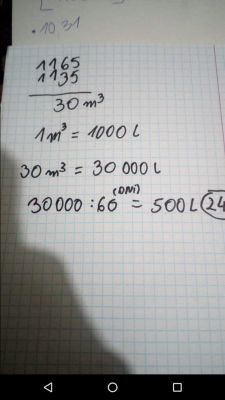 10,31
1165
1135
30 m³
1m³ = 1000 l
30 m³ = 30 000 l
(DNI)
30000 : 60 = 500 L 24